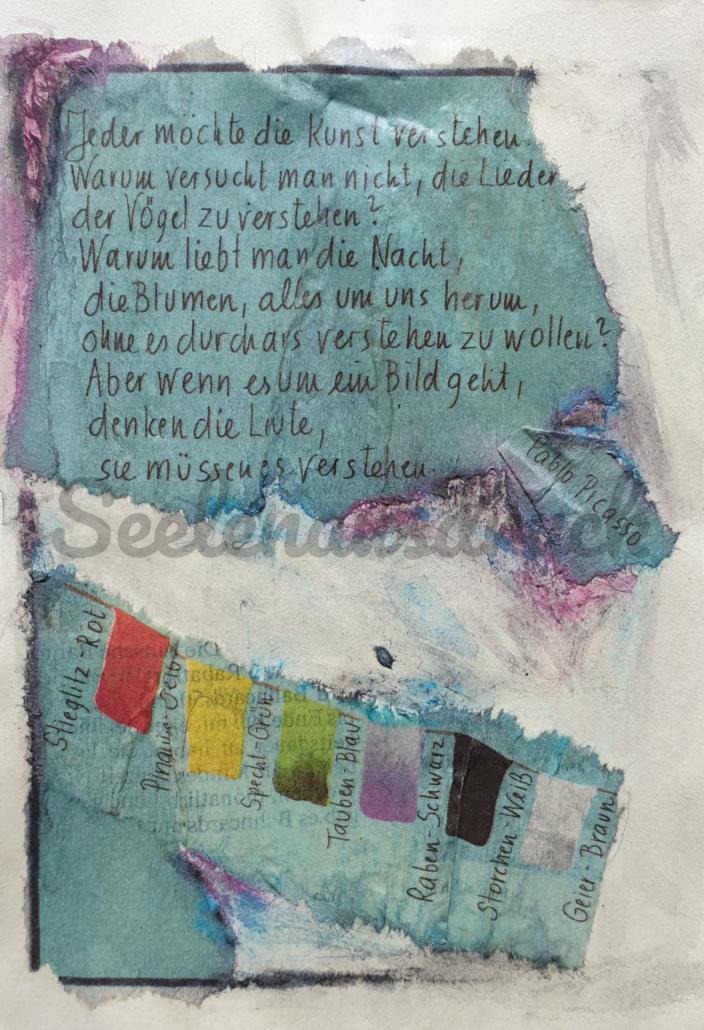 Jeder möchte die Kunst verstehen.
Warum versucht man nicht, die Lieder
der Vögel zu verstehen?
Warum liebt man die Nacht,
die Blumen, alles um uns herum,
ohne es durchars verstehen zu wollen?
Aber wenn es um ein Bild geht,
denken die Leute,
sie müssen es verstehen.
Pablo Picasso
Seelenausdruck
Stieglitz-Rot
Specht-Grün
Tauben-Blau
Raben-Schwarz
Storchen-Weiß
Geier-Braun